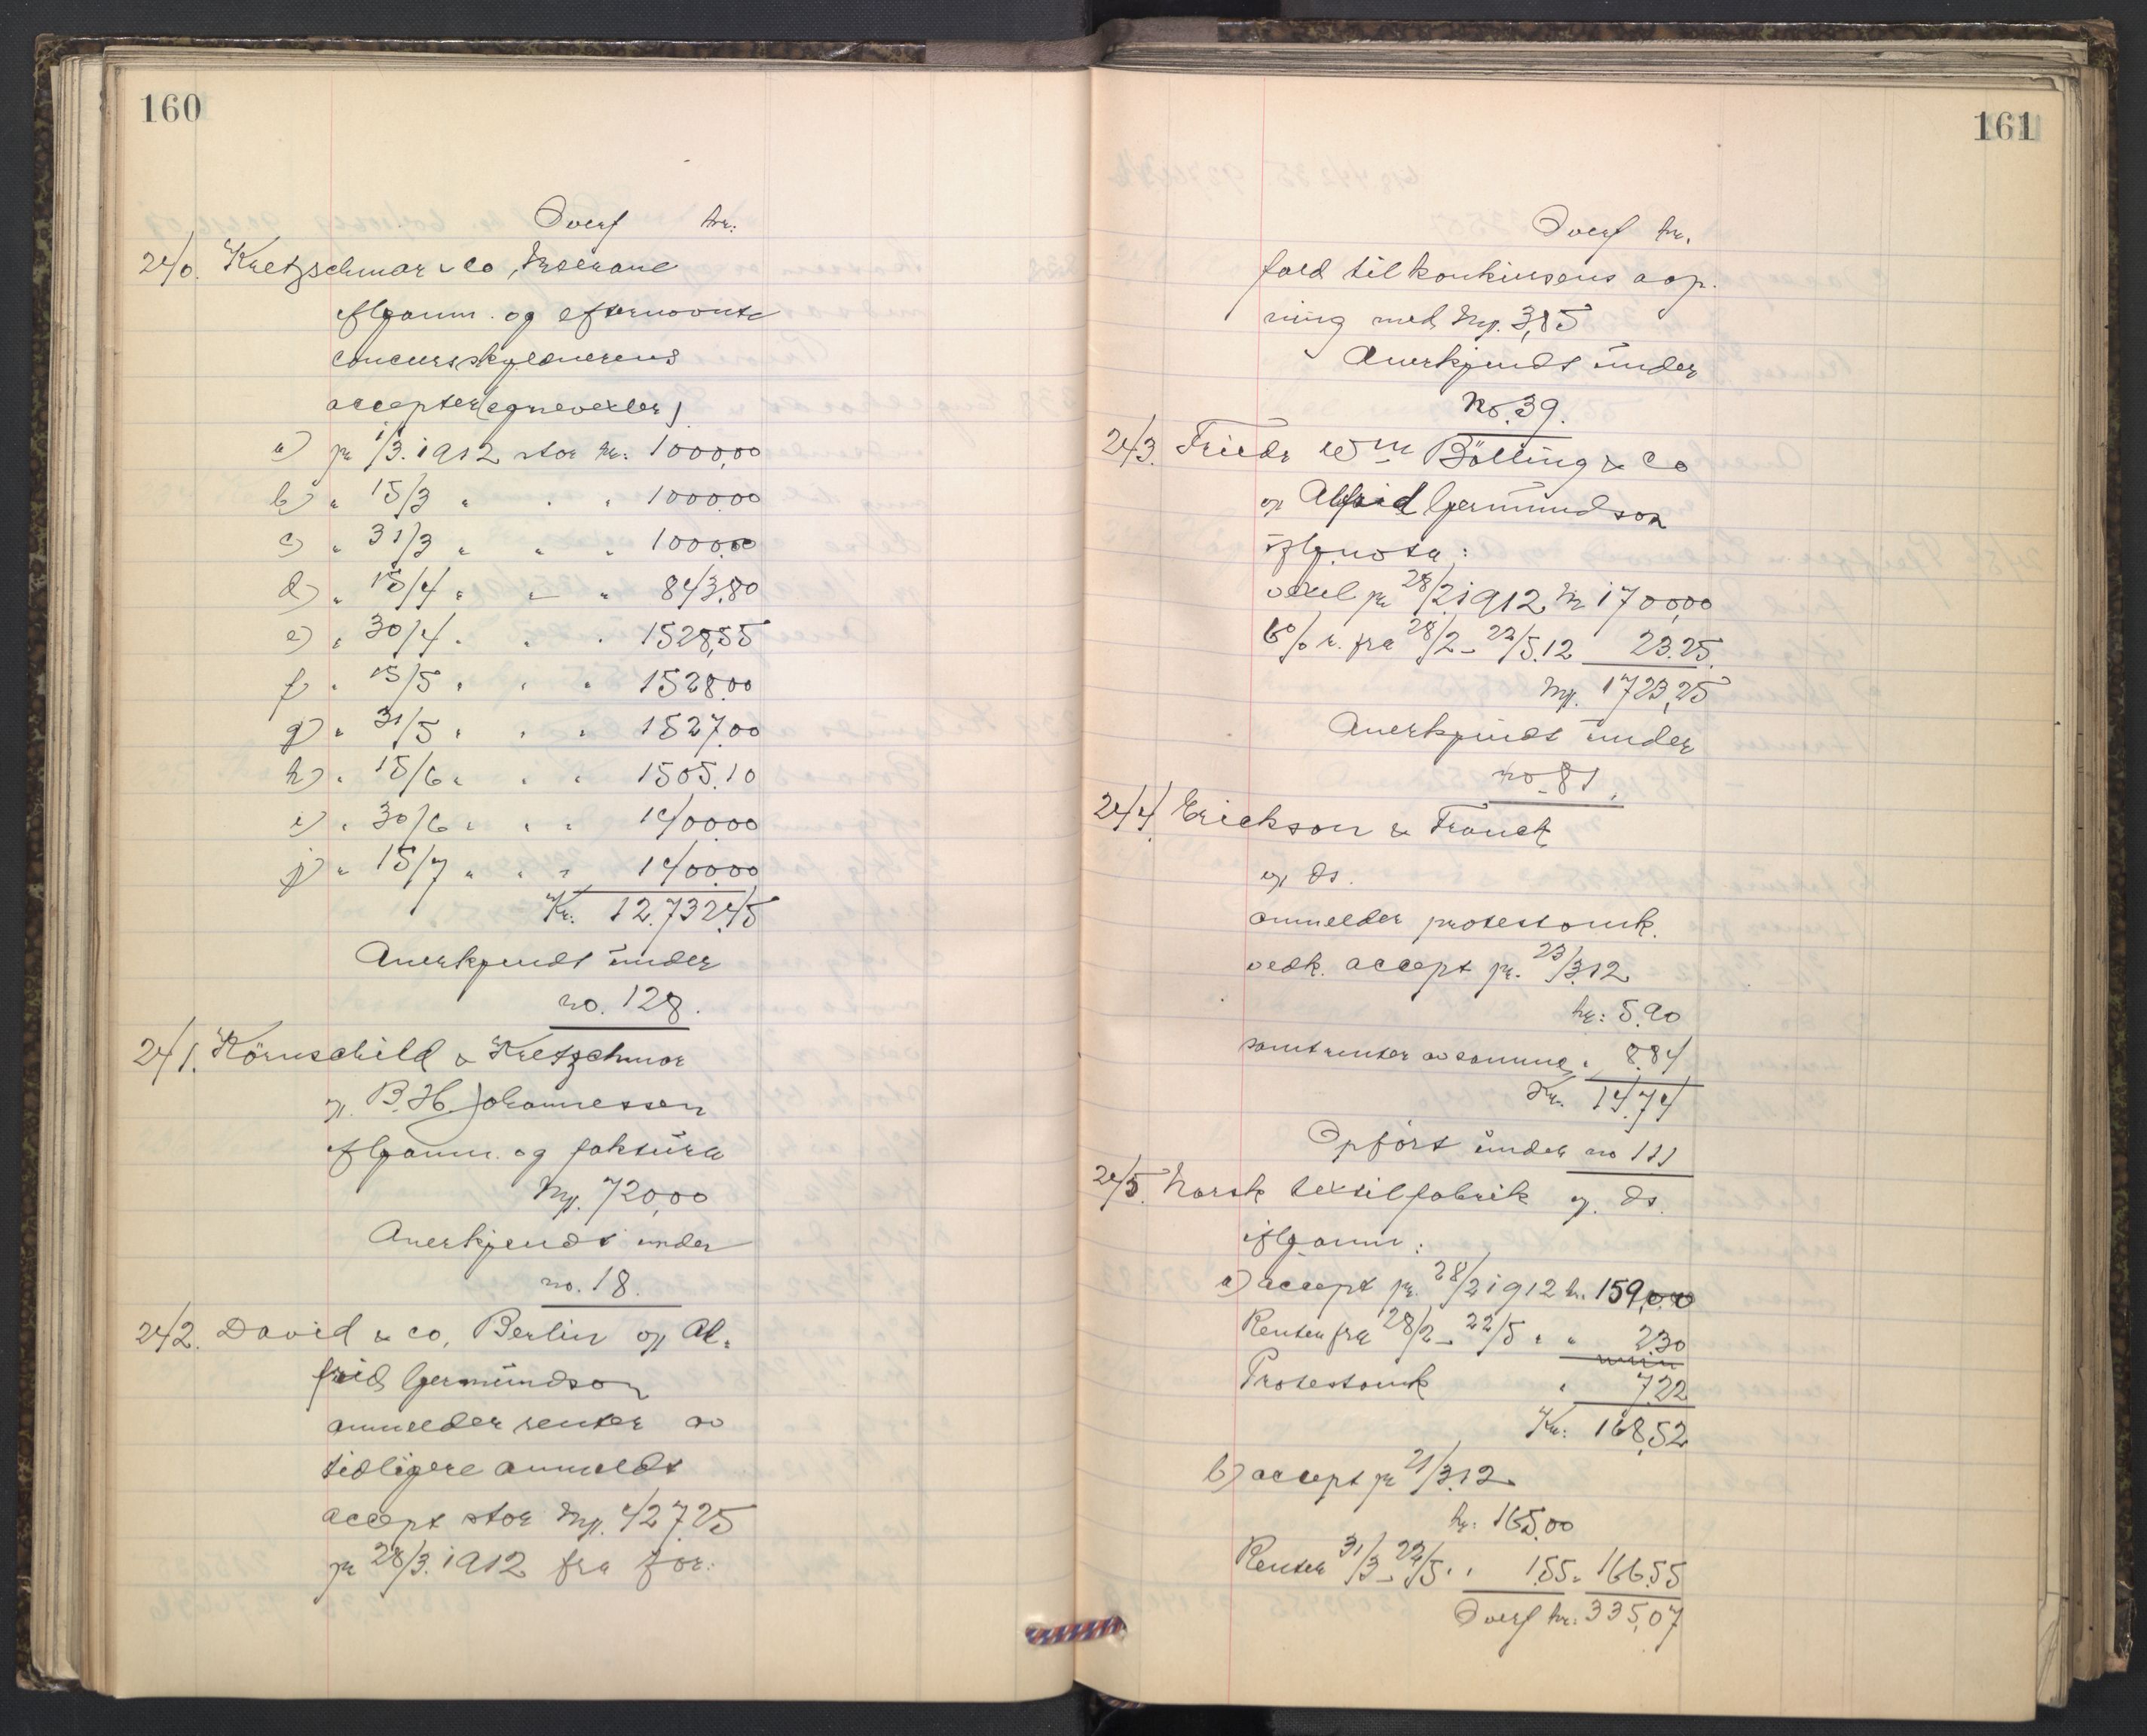 160
Overf kr.
240. Kretzschmar & Co,
iflganm. og efternævnte
concursskyldnerens
accepter (egnevexler)
a) pr 1/3. 1912 stor kr: 1000,00
b) " 15/3 " " " 1000.00
c) " 31/3 " " " 1000.00
d) " 15/4 " " " 843.80
e) " 30/4 " " " 1528,55
f " 15/5 " " " 1528.00
g) " 31/5 " " " 1527.00
h) " 15/6 " " " 1505.10
i) " 30/6 " " " 1400.00
j) " 15/7 " " " 1400.00
Kr. 12.732.45
Anerkjendt under
no. 128.
241. Körnschild & Kretzchmar
v. B. H. Johannessen
iflganm. og faktura
Mrk. 720,00
Anerkjendt under
no. 18.
242. David & Co, Berlin v Al-
frid Germundson
anmelder renter av
tidligere anmeldt
accept stor Mrk. 427.25
pr 28/3. 1912 fra for:
161
Overf kr.
fald til konkursens aap.
ning med Mrk. 3,85
Anerkjendt under
No. 39.
243. Friedr Wm Bölling & Co
v Alfrid Germundson
iflg nota:
vexel pr 28/2 1912 Mr 1700,00
6% r. fra 28/2 - 22/5.12 23.25.
Mrk. 1723,25
Anerkjendt under
no 81.
244. Erickson & Franck
v ds.
anmelder protestomk.
vedk. accept pr. 23/3.12
kr: 5.90
samt renter av samme " 8.84
Kr. 14.74
Opført under no 111
245. Norsk textilfabrik v. ds.
iflganm:
a) accept pr. 28/2 1912 kr. 159,00
Renter fra 28/2 - 22/5 " " 2.30
Protestomk " 7.22
Kr: 168,52
b) accept pr 21/3.12
kr: 165.00
Renter 31/3 - 22/5 " " 1.55 " 166.55
Overf kr: 335,07